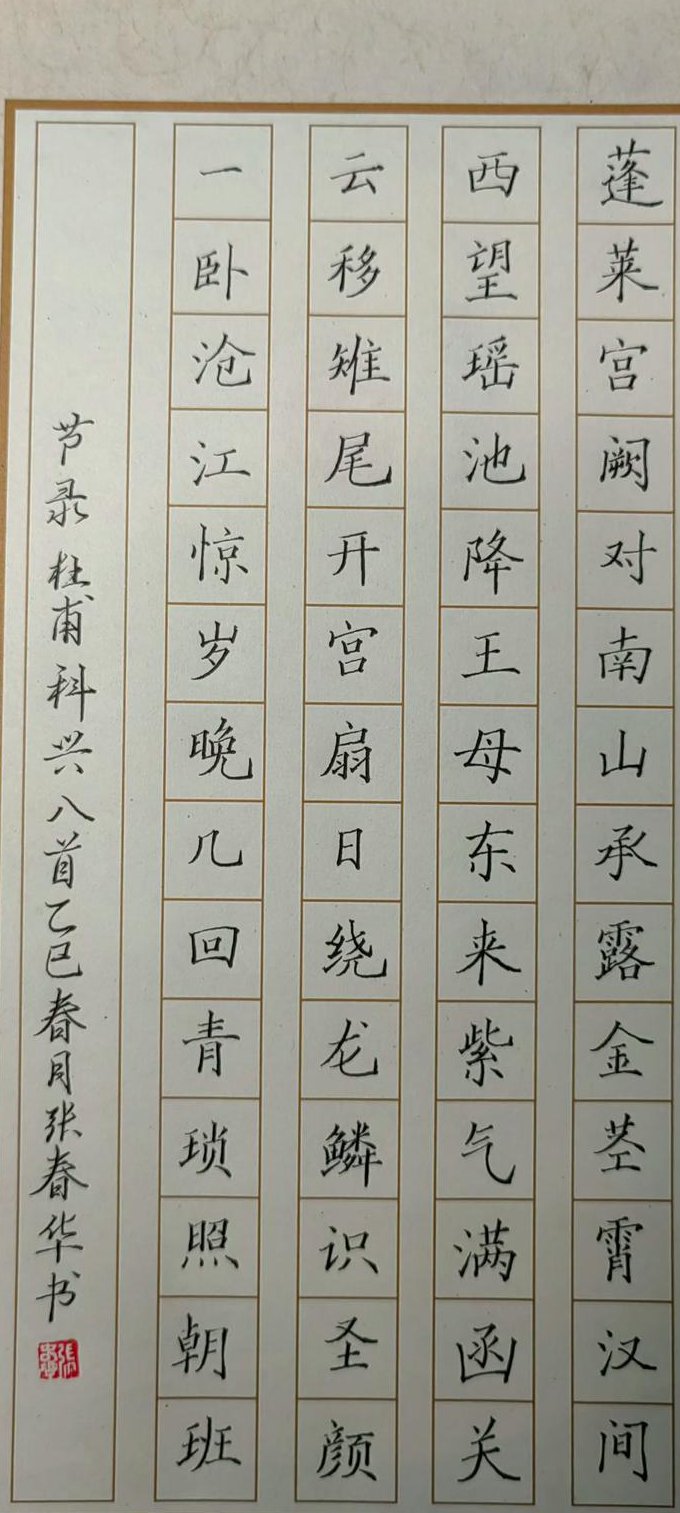 蓬莱宫阙对南山承露金茎霄汉间
西望瑶池降王母东来紫气满函关
云移雉尾开宫扇日绕龙鳞识圣颜
一卧沧江惊岁晚几回青琐照朝班
节录杜甫科兴八首乙巳春月张春华书